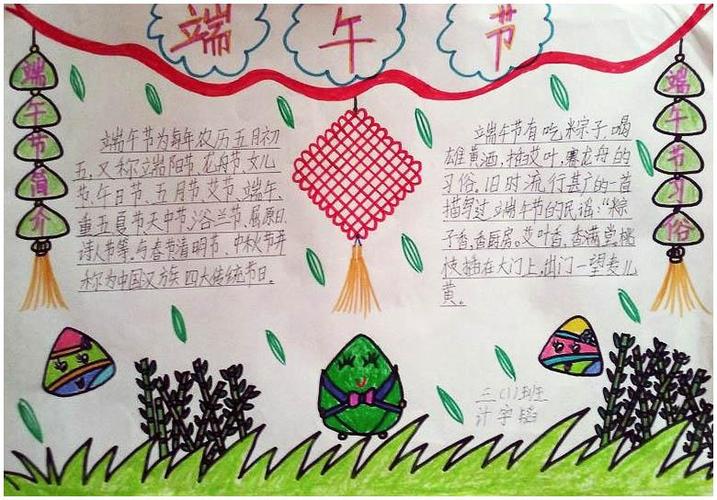 端午节
端午节简介
端午节为每年农历五月初
五,又称端阳节、龙舟节、女儿
节、午日节、五月节、艾节、端午、
重五、夏节天中节、浴兰节、屈原日、
诗人节等,与春节清明节、中秋节并
称为中国汉族四大传统节日。
端午节有吃粽子,喝
雄黄酒,插艾叶,赛龙舟的
习俗,旧时流行甚广的一首
描写过端午节的民谣:“粽
子香,香厨房。艾叶香,香满堂,桃
枝插在大门上,出门一望麦儿
黄。
端午节习俗
三(1)班
计宇韬